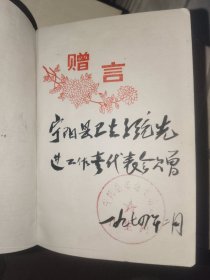 赠言
宁阳县卫生系统先
进工作者代表会赠
一九七四年二月